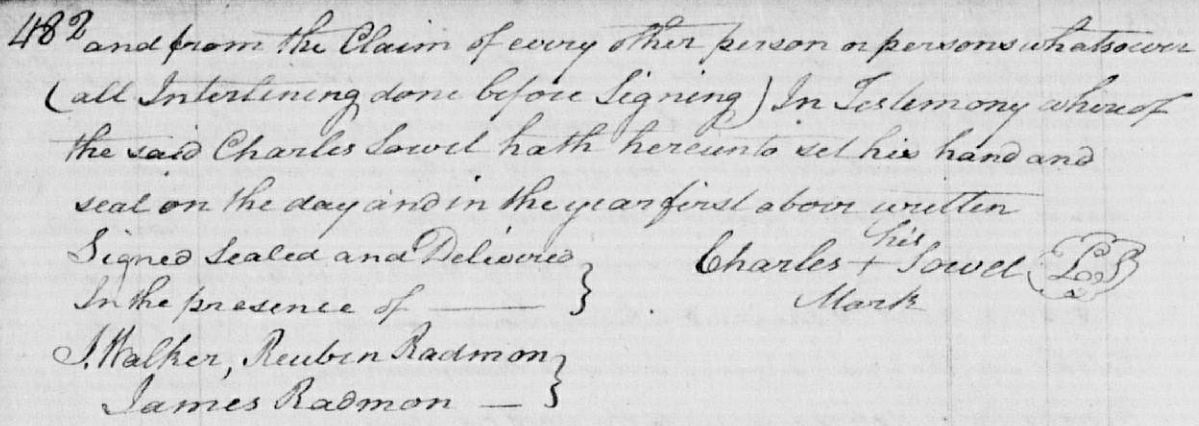 482 and from the Claim of every other person or persons whatsoever
(all Interlining done before Signing) In Testemony whereof
the said Charles Sowel hath hereunto set his hand and
seal on the day and in the year first above written
Signed Sealed and Delivered }
In the presence of —— }
his
Charles + Sowel LS
Mark
J. Walker, Reuben Radmon }
James Radmon — }